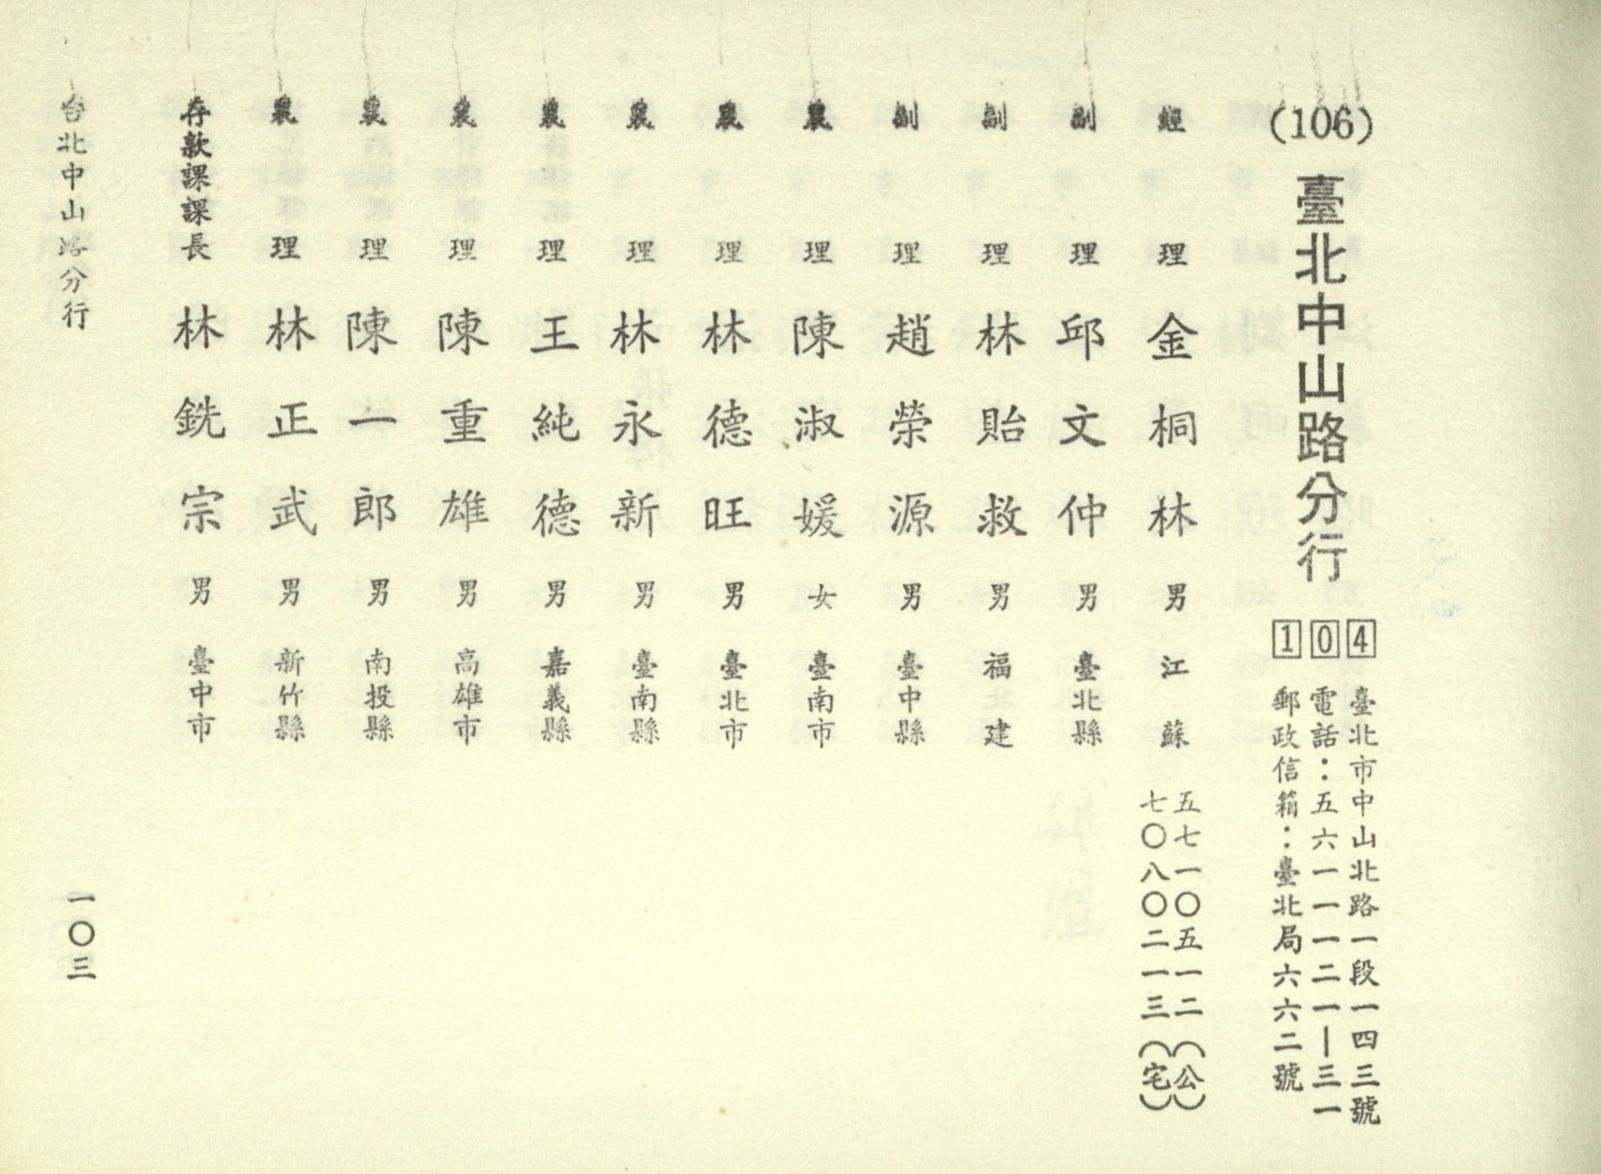 (106) 臺北中山路分行 104
臺北市中山北路一段一四三號
電話：五六一一一二一｜三一
郵政信箱：臺北局六六二號
經理 金桐林 男 江蘇 五七一〇五一二(公)
七〇八〇二一三(宅)
副理 邱文仲 男 臺北縣
副理 林貽救 男 福建
副理 趙榮源 男 臺中縣
襄理 陳淑媛 女 臺南市
襄理 林德旺 男 臺北市
襄理 林永新 男 臺南縣
襄理 王純德 男 嘉義縣
襄理 陳重雄 男 高雄市
襄理 陳一郎 男 南投縣
襄理 林正武 男 新竹縣
存款課課長 林銑宗 男 臺中市
台北中山路分行 一〇三